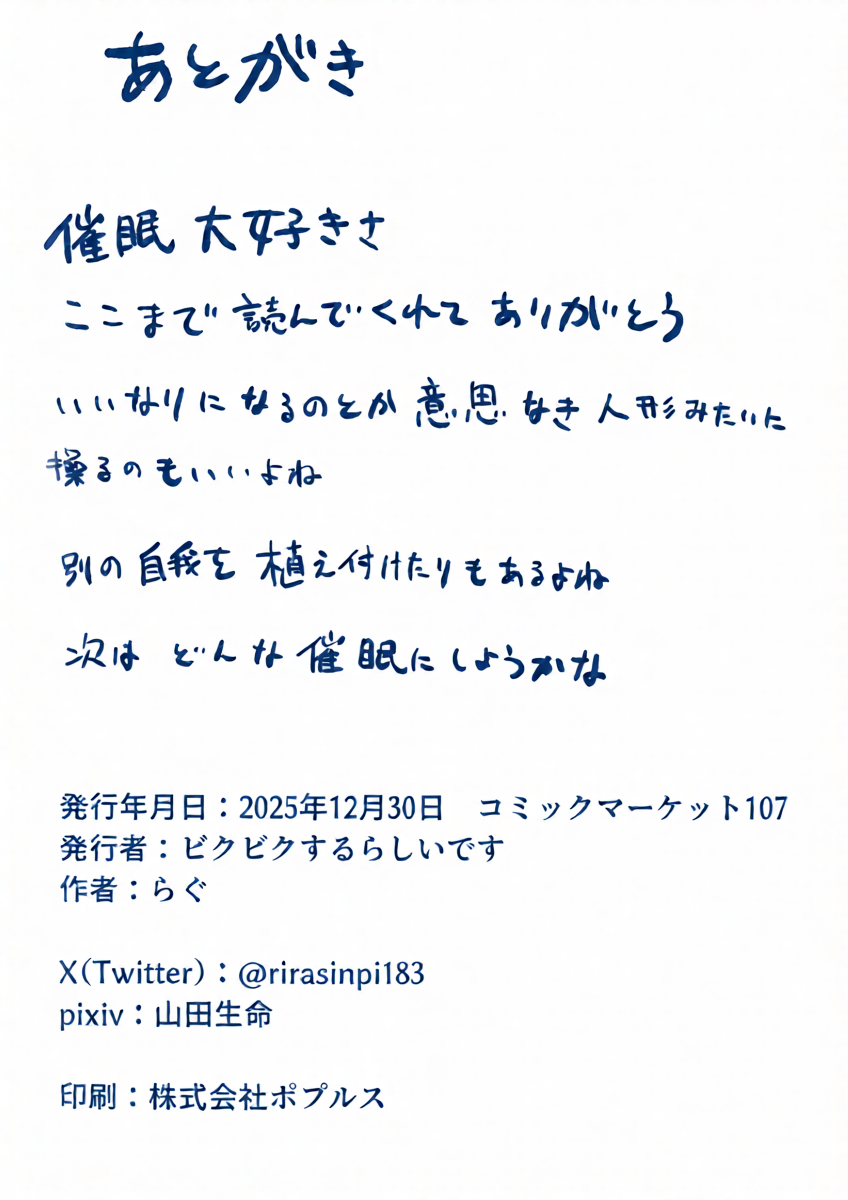 あとがき
催眠 大好きさ
ここまで 読んでくれて ありがとう
いいなりに なるのとか 意思 なき 人形みたいに
操るのもいいよね
別の自我を 植え付けたりもあるよね
次は どんな 催眠に しようかな
発行年月日:2025年12月30日 コミックマーケット107
発行者:ビクビクするらしいです
作者:らぐ
X(Twitter):@rirasinpi183
pixiv:山田生命
印刷:株式会社ポプルス